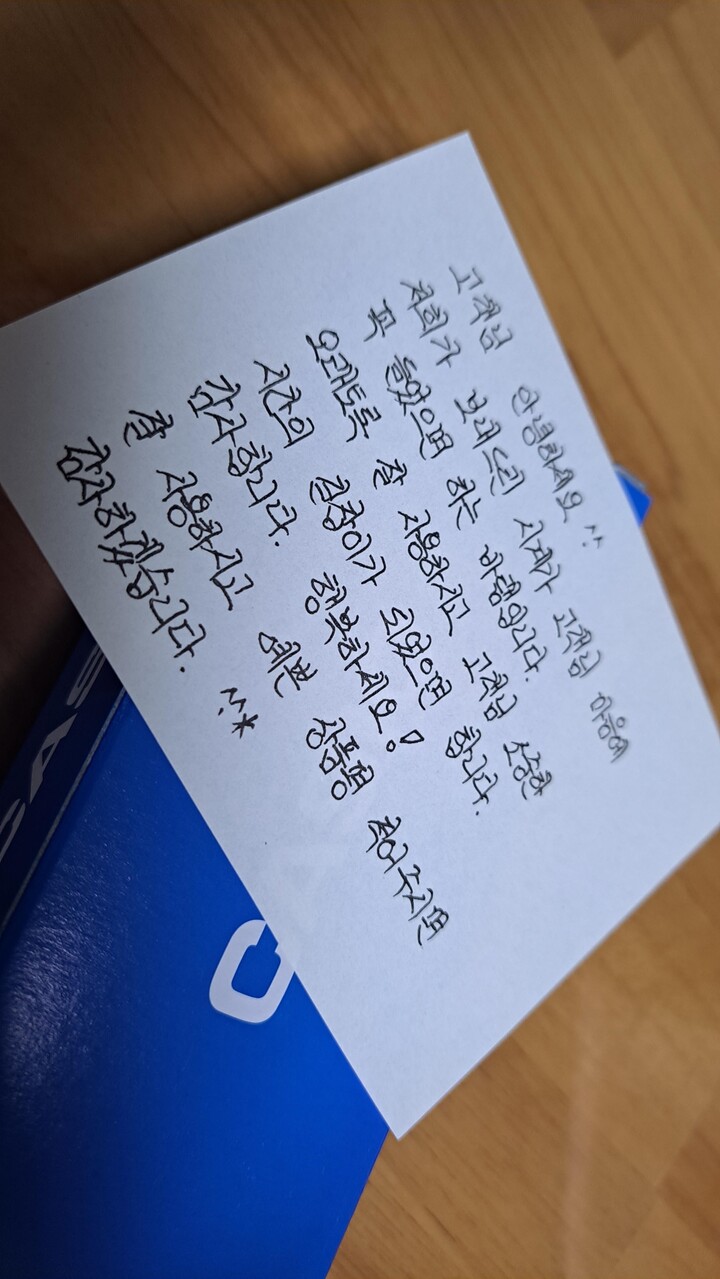 고객님 안녕하세요 ^^
저희가 보내드린 시계가 고객님 마음에
쏙 들었으면 하는 바램입니다.
오래토록 잘 사용하시고 고객님 소중한
시간의 길잡이가 되었으면 합니다.
감사합니다. 행복하세요!
잘 사용하시고 예쁜 상품평 적어주시면
감사하겠습니다. ^^*
CAS
C